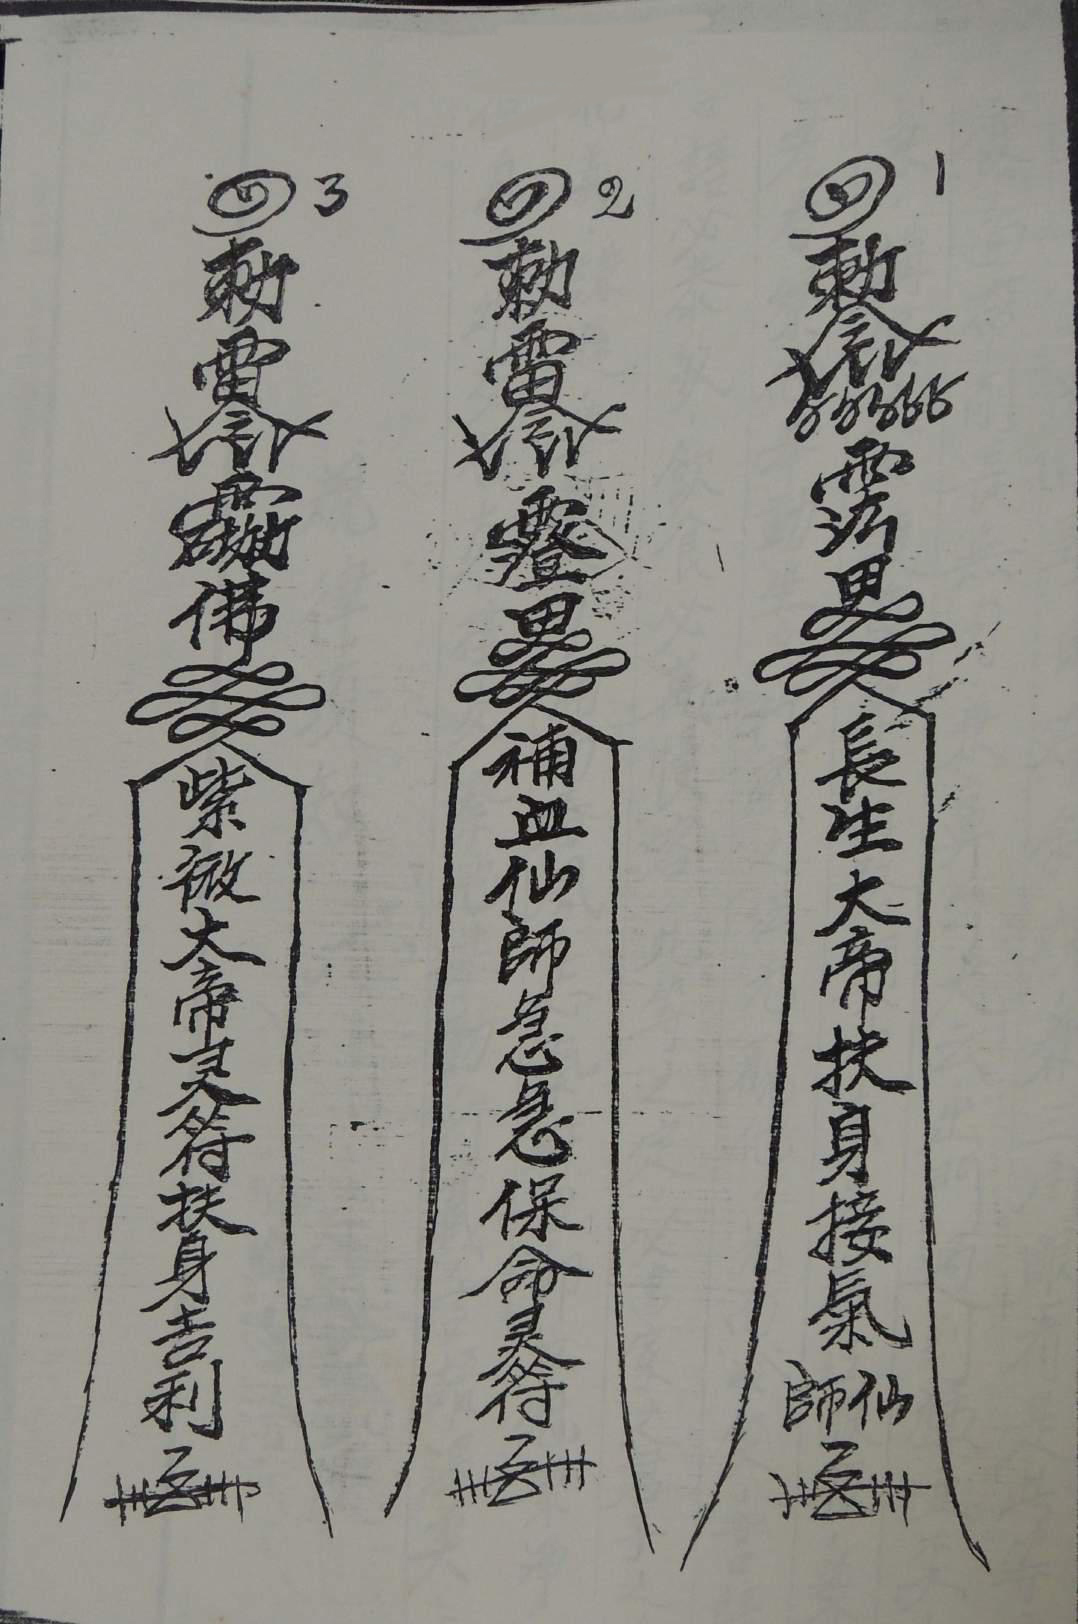 1
勅令
長生大帝扶身接氣
仙師
2
勅雷令
補血仙師急急保命灵符
3
勅雷令
佛
紫微大帝灵符扶身吉利